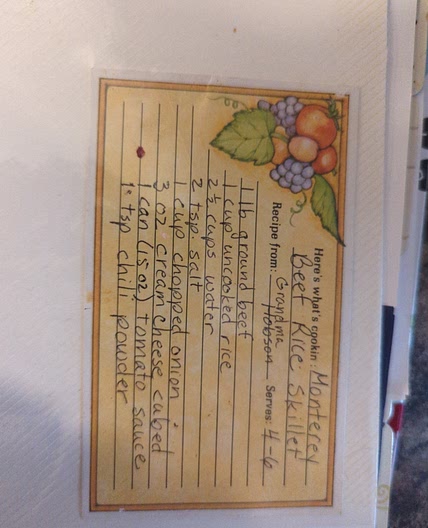 Here's what's cookin: Monterey
Beef Rice Skillet
Recipe from: Grandma Serves: 4-6
Hobson
1 lb ground beef
1 cup uncooked rice
2 ½ cups water
2 tsp. salt
1 cup chopped onion
3 oz. cream cheese cubed
1 can (15 oz) tomato sauce
1 tsp chili powder